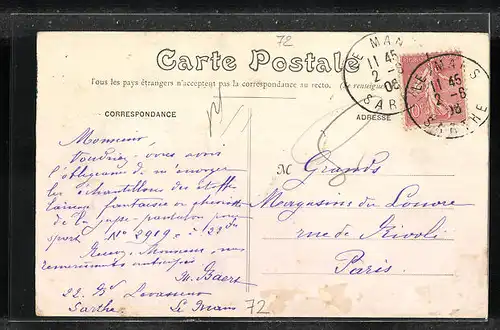 72
Carte Postale
Tous les pays étrangers n'acceptent pas la correspondance au recto. (Se renseigner
CORRESPONDANCE
ADRESSE
LE MANS
11 45
2 -6
06
SARTHE
LE MANS
11 45
2 -6
06
SARTHE
Monsieur,
Voudriez-vous avoir
l'obligeance de m'envoyer
les échantillons des étoffes
lainage fantaisie ou
de la jupe-pantalon pour
sport N° 2919 à 29
Recevez, Monsieur, mes
remerciements anticipés
M. Baert
22. Bd Levasseur
Sarthe Le Mans
72
M Grands
Magasins du Louvre
rue de Rivoli
Paris.